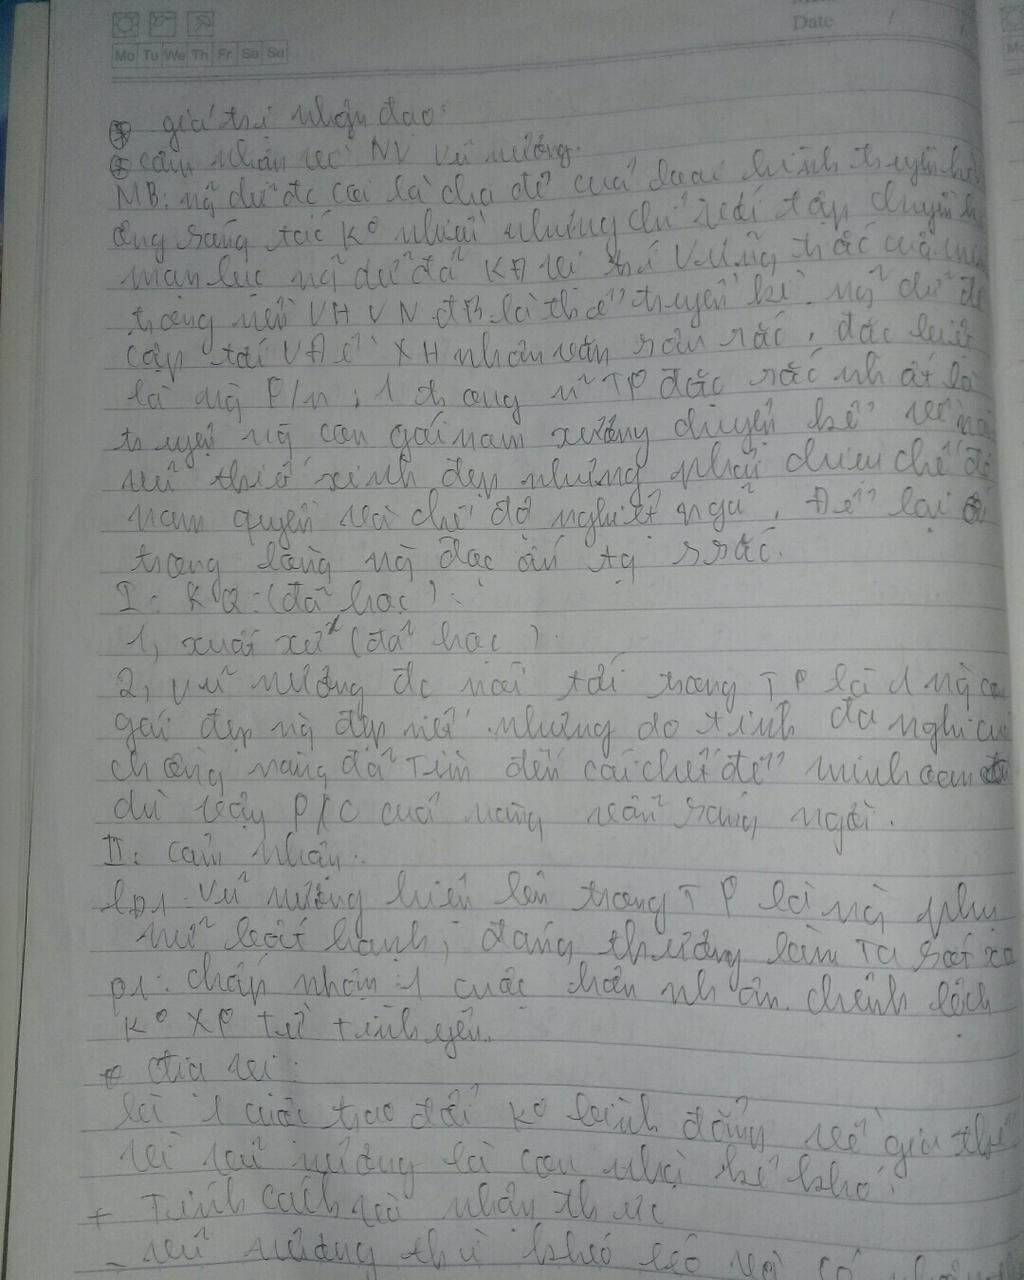 Date / /
Mo Tu We Th Fr Sa Su
giá trị nhận đạo:
cảm nhận về NV Vũ nương.
MB: ng dữ đc coi là cha đẻ cuả loại hình truyền kì
ông sáng tác K° nhiều nhưng chỉ với tập truyện
man lục ng dữ đã KĐ vị thế vững chắc của
trong nền VH VN. đB là thể truyền kì. Ng dữ đề
cập tới VĐ XH nhân văn sâu sắc, đặc biệt
là ng P/n; 1 trong TP đặc sắc nhất là
truyện ng con gái nam xương chuyện kể về
nữ thiết xinh đẹp nhưng phải chịu chế độ
nam quyền và chế độ nghiệt ngã, Để lại
trong lòng ng đọc ấn tg sâu sắc.
I: KQ: (đã học):
1, xuất xứ (đã học).
2, vũ nương đc nói tới trong TP là 1 ng con
gái đẹp ng đẹp nết nhưng do tính đa nghi của
chồng nàng đã Tìm đến cái chết để minh oan
dù vậy P/C cuả nàng vẫn sáng ngời.
II: Cảm nhận:
Lđ1: Vũ nương hiện lên trong TP là ng phụ
nữ bất hạnh, đáng thương
chấp nhận 1 cuộc hôn nhân. chênh lệch
K° XP từ tình yêu.
+ địa vị:
là 1 cuộc trao đổi K° bình đẳng về gia thế
vì vũ nương là con nhà kẻ khó.
+ Tính cách và nhận thức
- vũ nương thì